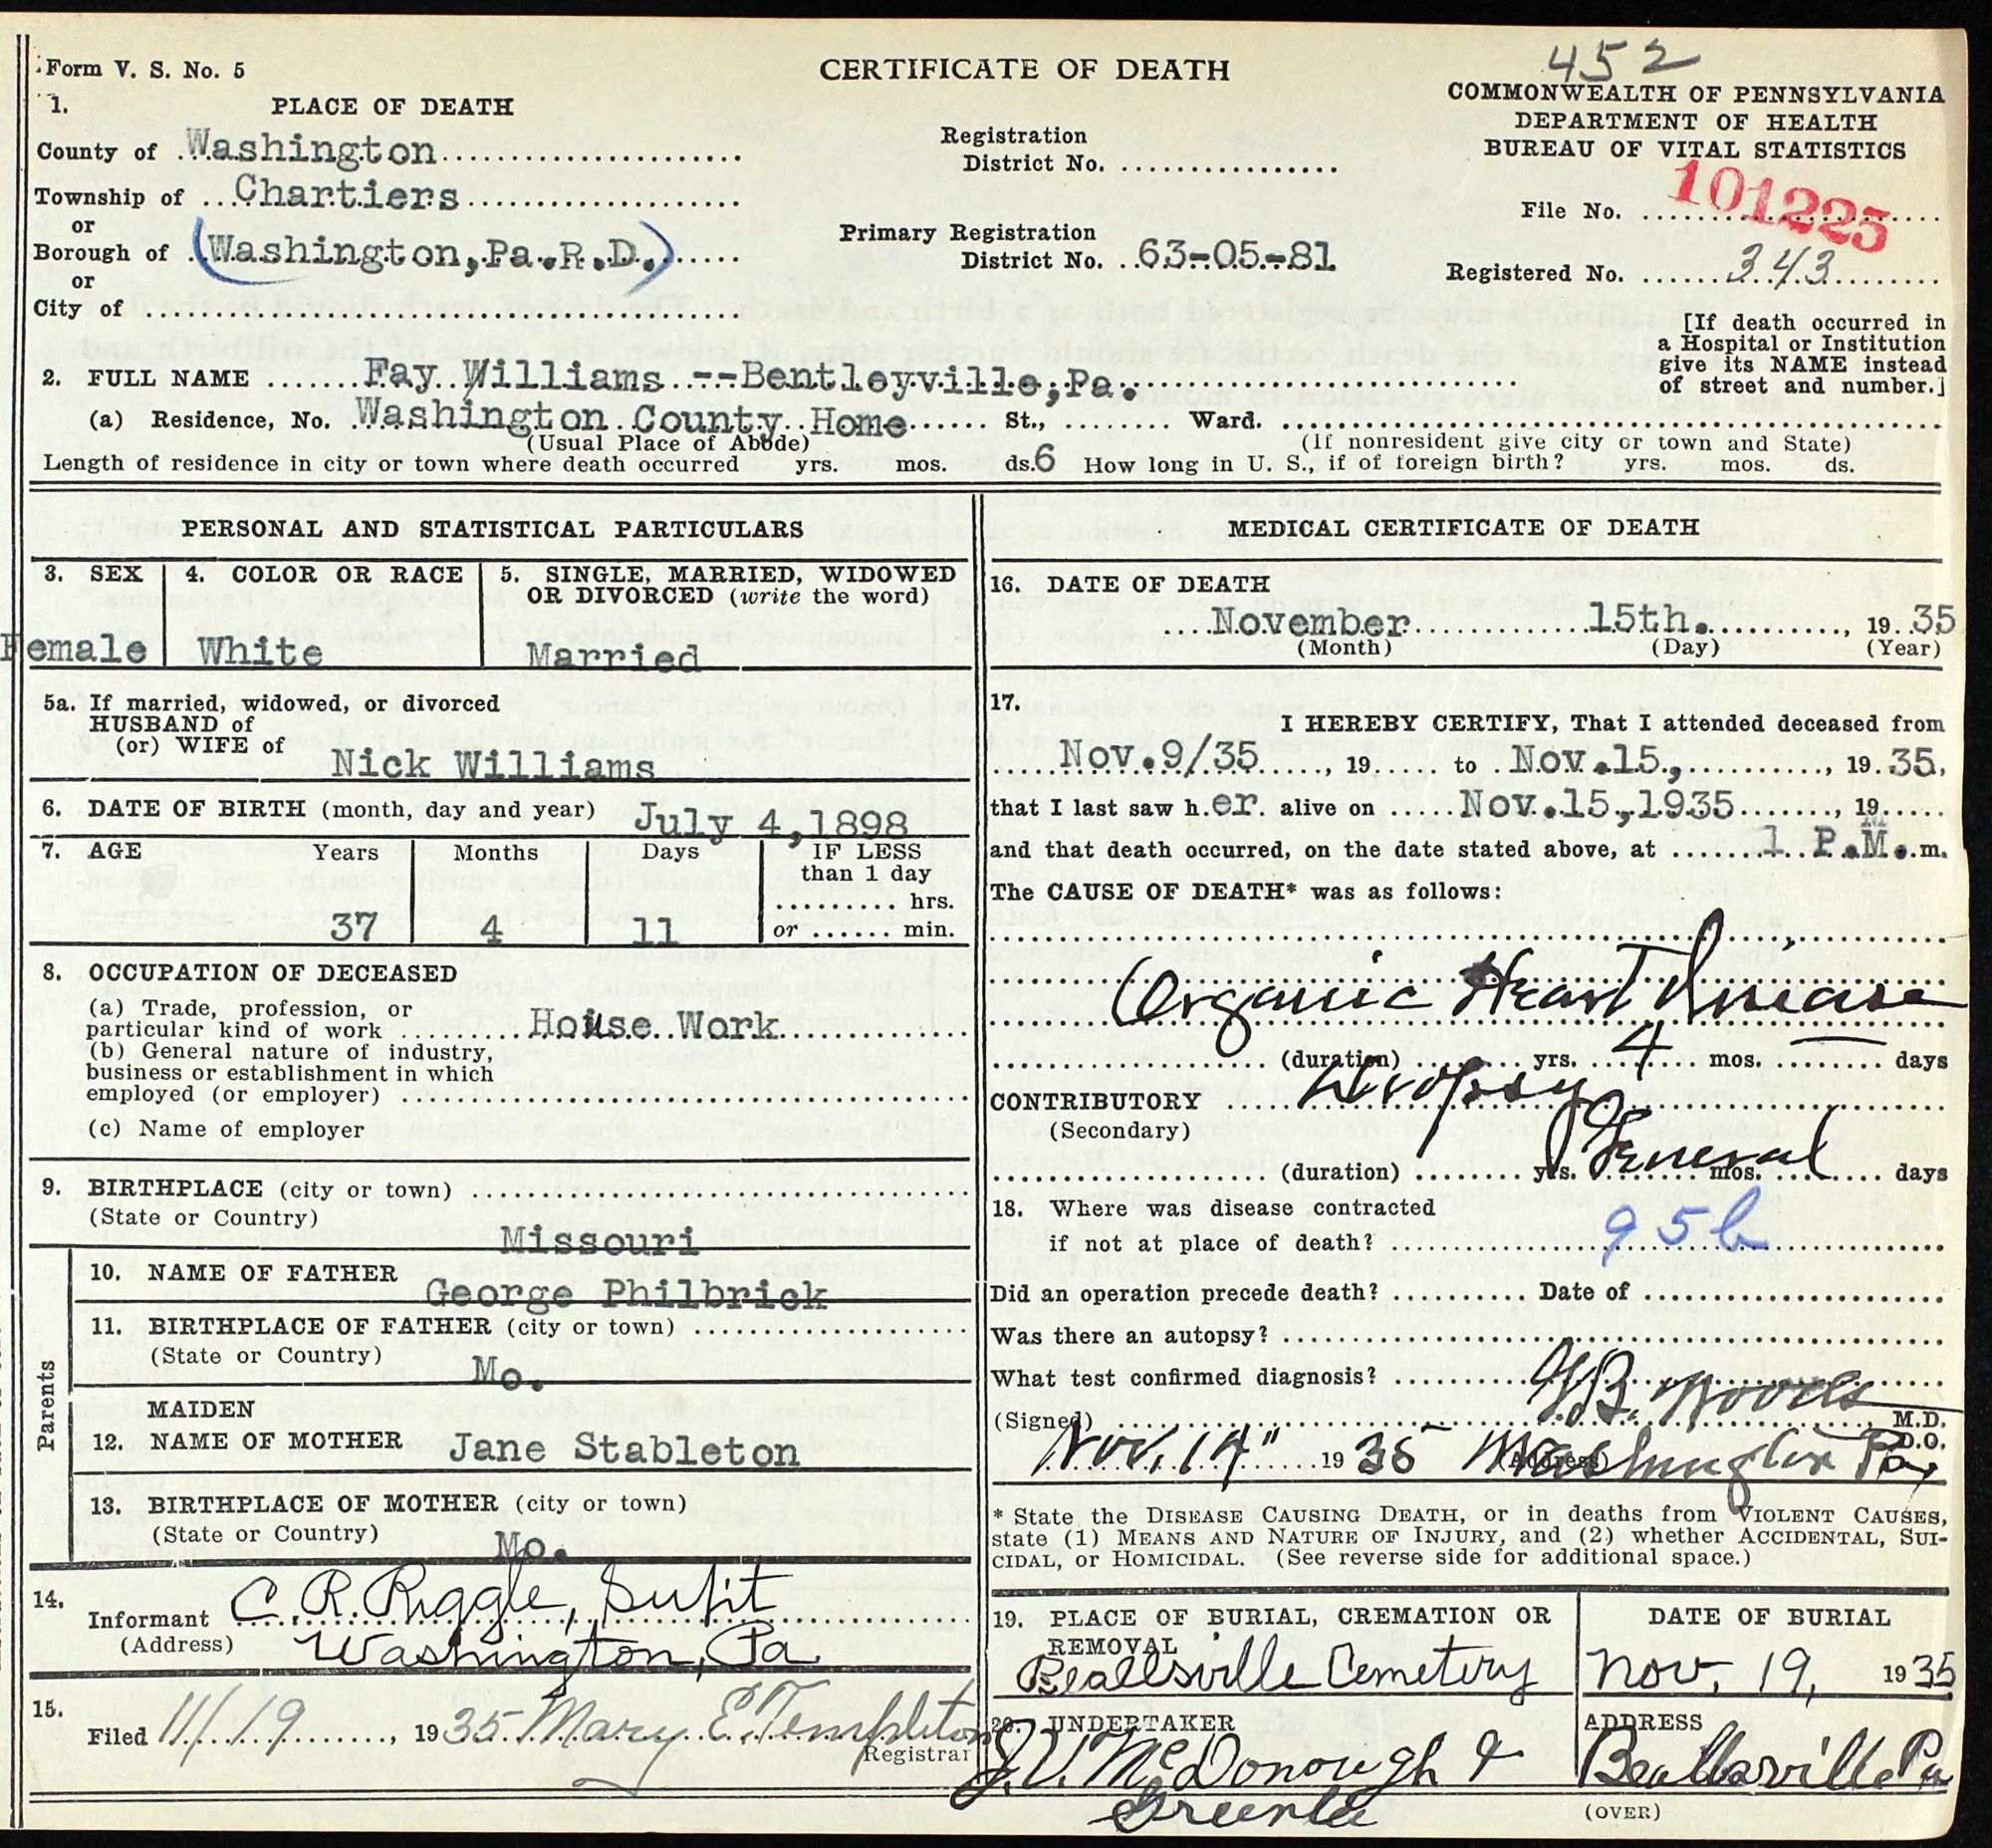 452
Form V. S. No. 5
CERTIFICATE OF DEATH
COMMONWEALTH OF PENNSYLVANIA
DEPARTMENT OF HEALTH
BUREAU OF VITAL STATISTICS
1. PLACE OF DEATH
County of Washington
Township of Chartiers
or
Borough of (Washington,Pa.R.D.)
or
City of
Registration
District No.
Primary Registration
District No. 63-05-81
File No. 101225
Registered No. 343
[If death occurred in
a Hospital or Institution
give its NAME instead
of street and number.]
2. FULL NAME Fay Williams --Bentleyville,Pa.
(a) Residence, No. Washington County Home St., Ward.
(Usual Place of Abode) (If nonresident give city or town and State)
Length of residence in city or town where death occurred yrs. mos. ds.6 How long in U. S., if of foreign birth? yrs. mos. ds.
PERSONAL AND STATISTICAL PARTICULARS
3. SEX
Female
4. COLOR OR RACE
White
5. SINGLE, MARRIED, WIDOWED
OR DIVORCED (write the word)
Married
5a. If married, widowed, or divorced
HUSBAND of
(or) WIFE of
Nick Williams
6. DATE OF BIRTH (month, day and year) July 4,1898
7. AGE Years Months Days IF LESS
than 1 day
hrs.
37 4 11 or min.
8. OCCUPATION OF DECEASED
(a) Trade, profession, or
particular kind of work House Work
(b) General nature of industry,
business or establishment in which
employed (or employer)
(c) Name of employer
9. BIRTHPLACE (city or town)
(State or Country)
Missouri
Parents
10. NAME OF FATHER
George Philbrick
11. BIRTHPLACE OF FATHER (city or town)
(State or Country)
Mo.
MAIDEN
12. NAME OF MOTHER Jane Stableton
13. BIRTHPLACE OF MOTHER (city or town)
(State or Country)
Mo.
14.
Informant C. R. Riggle, Supit
(Address) Washington, Pa
15.
Filed 11/19, 1935 Mary E. Templeton
Registrar
MEDICAL CERTIFICATE OF DEATH
16. DATE OF DEATH
November 15th. , 19 35
(Month) (Day) (Year)
17.
I HEREBY CERTIFY, That I attended deceased from
Nov.9/35 , 19 to Nov.15, , 19 35,
that I last saw h er alive on Nov.15,1935 19
and that death occurred, on the date stated above, at 1 P.M. m.
The CAUSE OF DEATH* was as follows:
Organic Heart Disease
(duration) yrs. 4 mos. — days
CONTRIBUTORY Dropsy
(Secondary) General
(duration) yrs. mos. days
18. Where was disease contracted
if not at place of death? 95b
Did an operation precede death? Date of
Was there an autopsy?
What test confirmed diagnosis?
(Signed) Woods M.D.
D.O.
Nov. 19" 1935 (Address) Washington Pa
* State the DISEASE CAUSING DEATH, or in deaths from VIOLENT CAUSES,
state (1) MEANS AND NATURE OF INJURY, and (2) whether ACCIDENTAL, SUI-
CIDAL, or HOMICIDAL. (See reverse side for additional space.)
19. PLACE OF BURIAL, CREMATION OR
REMOVAL
Beallsville Cemetery
DATE OF BURIAL
Nov. 19, 1935
20. UNDERTAKER
J.V. McDonough &
Greenlee
ADDRESS
Beallsville Pa
(OVER)